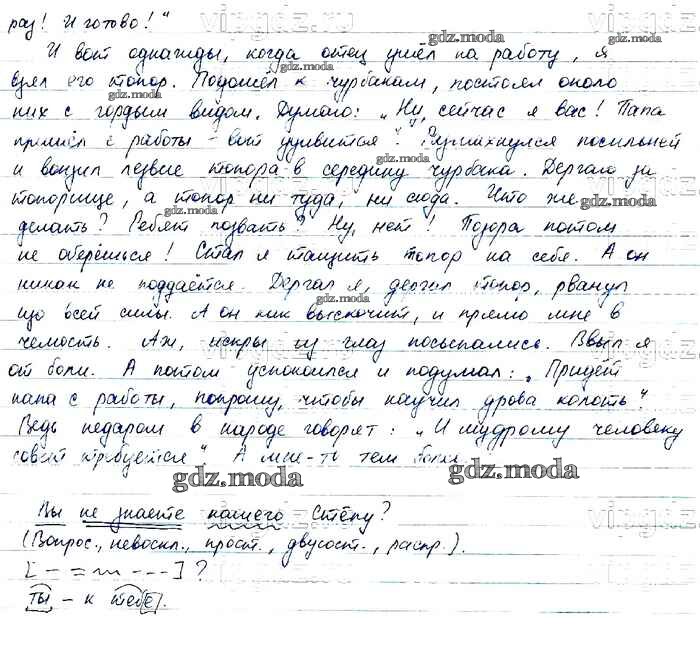 раз! И готово!"
И вот однажды, когда отец ушёл на работу, я
взял его топор. Подошёл к чурбакам, постоял около
них с гордым видом. Думаю: „Ну, сейчас я вас! Папа
пришёл с работы – вот удивится?" Размахнулся посильней
и вонзил лезвие топора в середину чурбака. Дергаю за
топорище, а топор ни туда, ни сюда. Что же
делать? Ребят позвать? Ну, нет! Позора потом
не оберёшься! Стал я тащить топор на себя. А он
никак не поддаётся. Дергал я, дергал топор, рванул
изо всей силы. А он как выскочит, и прямо мне в
челюсть. Аж, искры из глаз посыпались. Взвыл я
от боли. А потом успокоился и подумал: „Придёт
папа с работы, попрошу, чтобы научил дрова колоть".
Ведь недаром в народе говорят: „И мудрому человеку
совет требуется". А мне-то тем более.
Вы не знаете нашего Стёпу?
(Вопрос., невоскл., прост., двусост., распр.).
[– = ~~~ ---]?
ты – к тебе.
gdz.moda
virgdz.moda